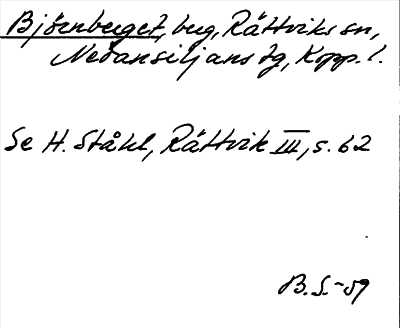 Björnberget, beg, Rättviks sn,
Nedansiljans tg, Kopp. l.
Se H. Ståhl, Rättvik III, s. 62
B. S. -59